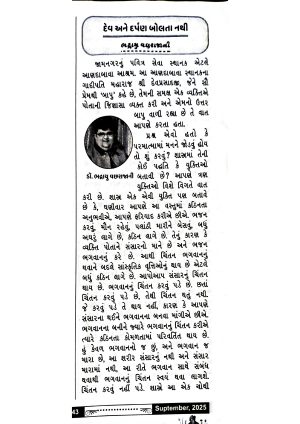 દેવ અને દર્પણ બોલતા નથી
ભદ્રાયુ વછરાજાની
જામનગરનું પવિત્ર સેવા સ્થાનક એટલે
આણદાબાવા આશ્રમ. આ આણદાબાવા સ્થાનકના
ગાદીપતિ મહારાજ શ્રી દેવપ્રસાદજી, જેને સૌ
પ્રેમથી 'બાપુ' કહે છે, તેમની સમક્ષ એક વ્યક્તિએ
પોતાની જિજ્ઞાસા વ્યક્ત કરી અને એમનો ઉત્તર
બાપુ વાળી રહ્યા છે તે વાત
આપણે કરતા હતા.
પ્રશ્ન એવો હતો કે
પરમાત્મામાં મનને જોડવું હોય
તો શું કરવું? શાસ્ત્રમાં તેની
કોઈ પદ્ધતિ કે યુક્તિઓ
બતાવી છે? આપણે ત્રણ
યુક્તિઓ વિશે વિગતે વાત
ડૉ. ભદ્રાયુ વછરાજાની
કરી છે. શાસ્ત્ર એક એવી યુક્તિ પણ બતાવે
છે કે, ઘણીવાર આપણે આ વસ્તુમાં કઠિનતા
અનુભવીએ, આપણે ફરિયાદ કરીએ છીએ. ભજન
કરવું, મૌન રહેવું, પલાંઠી મારીને બેસવું, બધું
અઘરું લાગે છે. કઠિન લાગે છે. તેનું કારણ કે
વ્યક્તિ પોતાને સંસારનો માને છે અને ભજન
ભગવાનનું કરે છે. આથી ચિંતન ભગવાનનું
થવાને બદલે સાંસ્કૃતિક વૃત્તિઓનું થાય છે એટલે
બધું કઠિન લાગે છે. આપોઆપ સંસારનું ચિંતન
થાય છે. ભગવાનનું ચિંતન કરવું પડે છે. છતાં
ચિંતન કરવું પડે છે, તેથી ચિંતન થતું નથી.
જે કરવું પડે તે થાય નહીં. કારણ કે આપણે
સંસારના થઈને ભગવાનના બનવા માંગીએ છીએ.
ભગવાનના બનીને જ્યારે ભગવાનનું ચિંતન કરીએ
ત્યારે કઠિનતા કોમળતામાં પરિવર્તિત થાય છે.
હું કેવળ ભગવાનનો જ છું, અને ભગવાન જ
મારા છે. આ શરીર સંસારનું નથી અને સંસાર
મારામાં નથી, આ રીતે ભગવાન સાથે સંબંધ
થવાથી ભગવાનનું ચિંતન સ્વયં થવા લાગશે.
ચિંતન કરવું નહીં પડે. શાસ્ત્ર આ એક ચોથી
43
Suptember, 2025